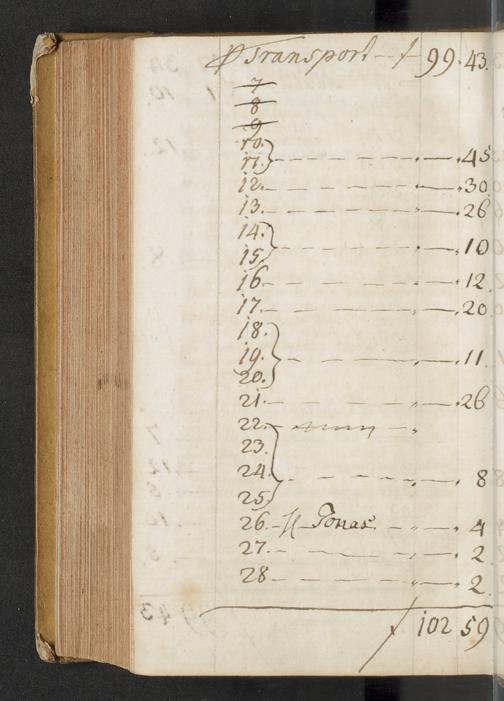 ℘ Transport ƒ 99.43.
7
8
9
10.
11. 45
12. 30
13. 26
14.
15. 10
16. 12.
17. 20.
18.
19. 11.
20.
21. 26
22.
23.
24. 8
25.
26. Jonas. 4
27. 2.
28 2.
ƒ 102 59